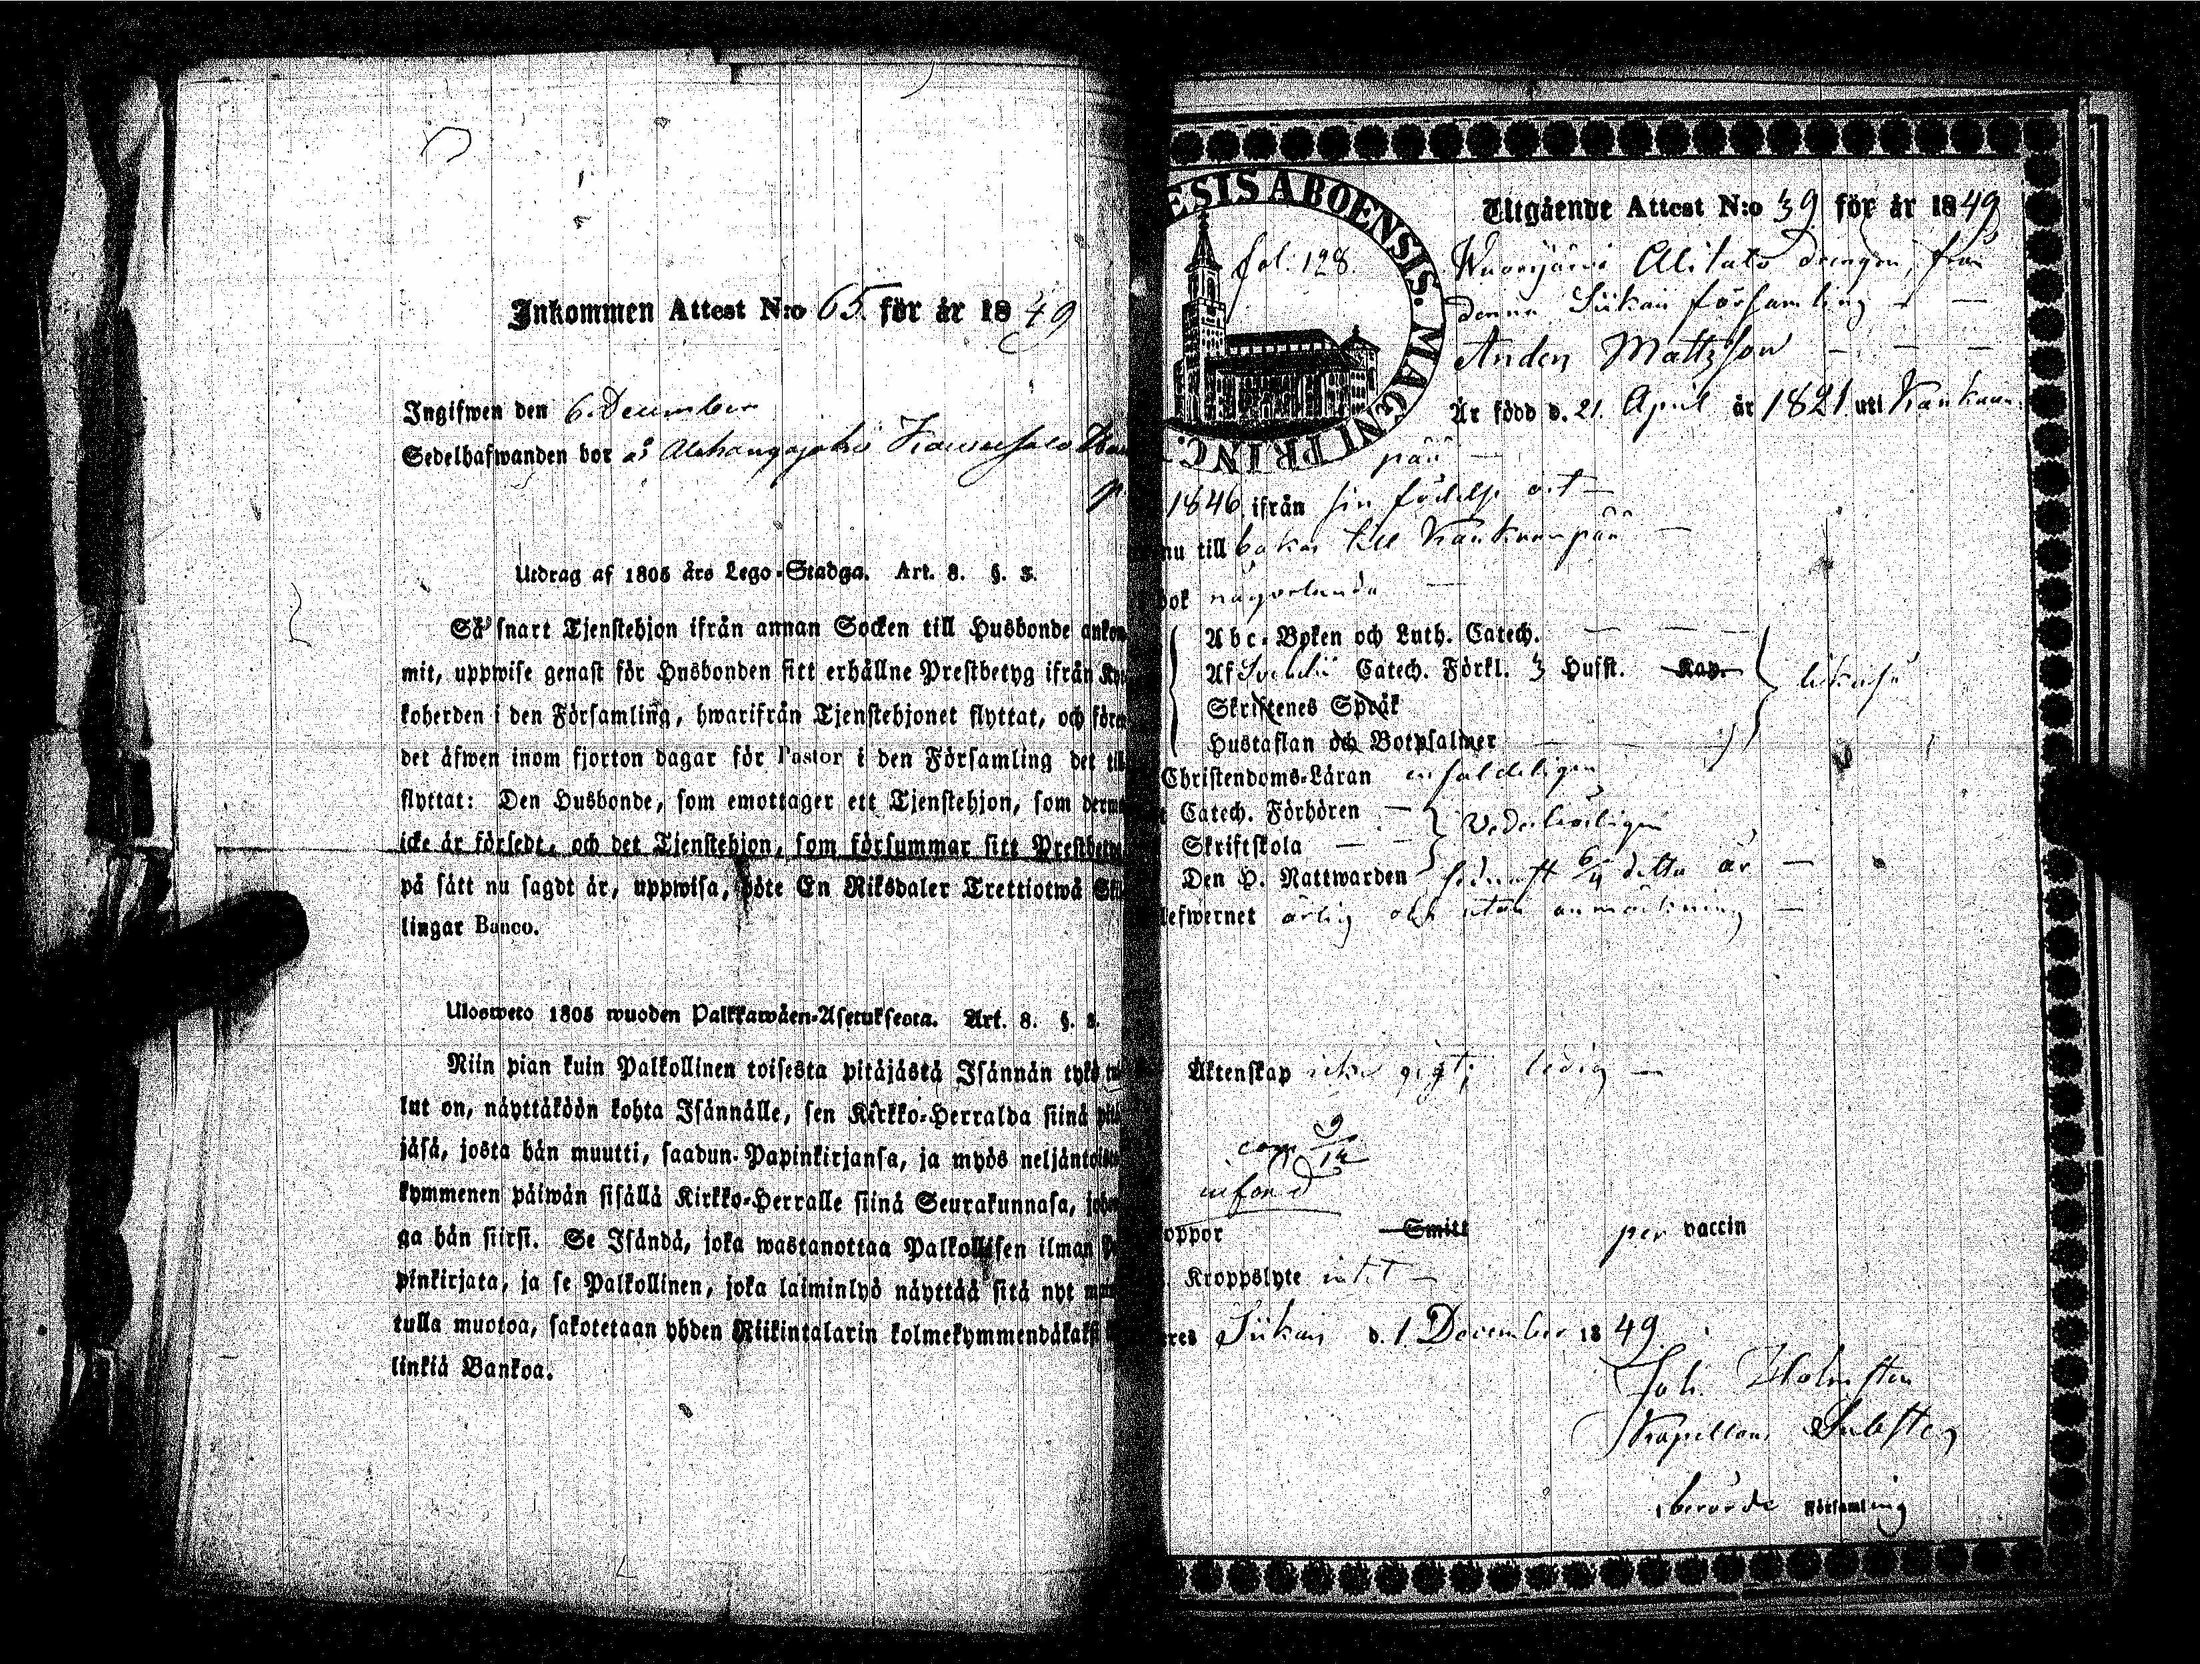 Inkommen Attest N:o 65. för år 1849
Ingifwen den 6. December
Sedelhafwanden bor å
Utdrag af 1805 års Lego-Stadga. Art. 8. §. 3.
Så snart Tjenstehjon ifrån annan Socken till Husbonde ankom
mit, uppwise genast för Husbonden sitt erhållne Prestbetyg ifrån Kyr
koherden i den Församling, hwarifrån Tjenstehjonet flyttat, och före
det äfwen inom fjorton dagar för Pastor i den Församling det till
flyttat: Den Husbonde, som emottager ett Tjenstehjon, som derm
icke är försedt, och det Tjenstehjon, som försummar sitt Prestbetyg
på sätt nu sagdt är, uppwisa, böte En Riksdaler Trettiotwå Skil
lingar Banco.
Ulosweto 1805 wuoden Palkkawäen-Asetuksesta. Art. 8. §. 3.
Niin pian kuin Palkollinen toisesta pitäjästä Isännän tykö tul
lut on, näyttäköön kohta Isännälle, sen Kirkko-Herralda siinä pitä
jäsä, josta hän muutti, saadun Papinkirjansa, ja myös neljäntois
kymmenen päiwän sisällä Kirkko-Herralle siinä Seurakunnasa, johon
ga hän siirsi. Se Isändä, joka wastanottaa Palkollisen ilman Pa
pinkirjata, ja se Palkollinen, joka laiminlyö näyttää sitä nyt m
tulla muotoa, sakotetaan yhden Riikintalarin kolmekymmendäkaksi
linkiä Bankoa.
ESIS ABOENSIS. MAGNI PRINC.
fol. 128.
Utgående Attest N:o 39 för år 1849
drengen, från
denna Siikais församling
Anders Mattsson
Är född d. 21. April år 1821 uti Kankaan
pää
1846 ifrån sin födelse ort
nu till baka till Kankaanpää
bok någorlunda
Abc-Boken och Luth. Catech.
Af Svebelii Catech. Förkl. 3 Hufst. Kap. likaså
Skriftenes Språk
Hustaflan och Botpsalmer
Christendoms-Läran enfaldeligen
Catech. Förhören
Skriftskola
wederbörligen
Den H. Nattwarden sednast 6/4 detta år
lefwernet ärlig och utan anmärkning
Äktenskap icke gift; ledig
9/12
oppor Smitt per vaccin
Kroppslyte intet
Siikais d. 1 December 1849.
Joh. Holmsten
Kapellans Substit.
berörde Församling